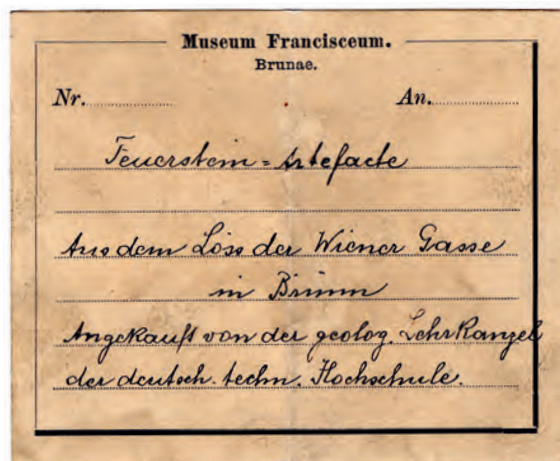 Museum Francisceum.
Brunae.
Nr. An.
Feuerstein = Artefacte
Aus dem Löss der Wiener Gasse
in Brünn
Angekauft von der geolog. Lehrkanzel
der deutsch. techn. Hochschule.